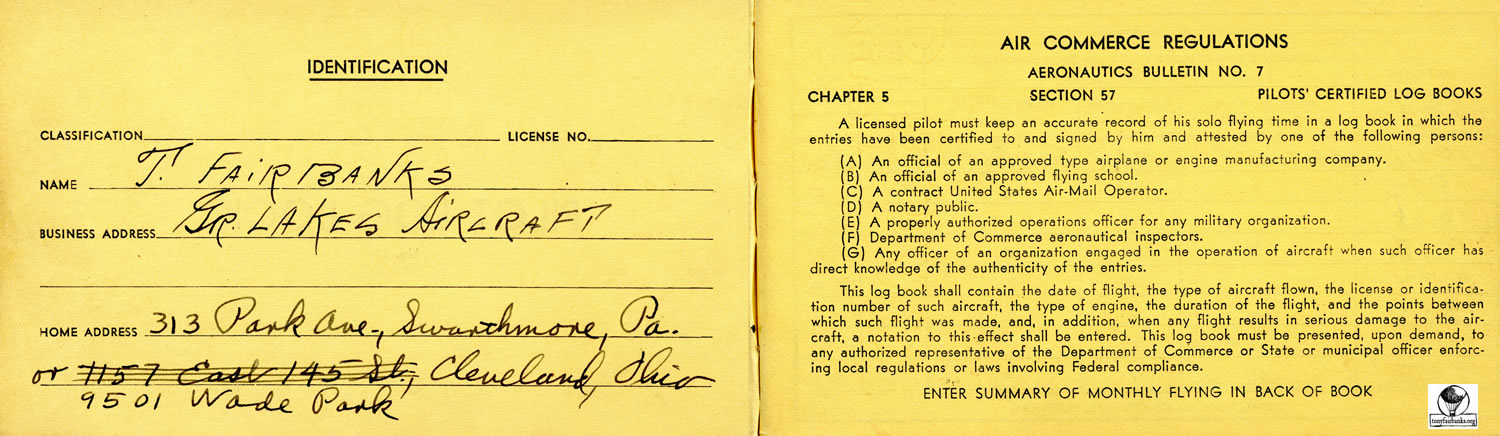 IDENTIFICATION
CLASSIFICATION LICENSE NO.
NAME T. FAIRBANKS
BUSINESS ADDRESS GR. LAKES AIRCRAFT
HOME ADDRESS 313 Park Ave., Swarthmore, Pa.
or 1157 East 145 St., Cleveland, Ohio
9501 Wade Park
AIR COMMERCE REGULATIONS
AERONAUTICS BULLETIN NO. 7
CHAPTER 5 SECTION 57 PILOTS' CERTIFIED LOG BOOKS
A licensed pilot must keep an accurate record of his solo flying time in a log book in which the
entries have been certified to and signed by him and attested by one of the following persons:
(A) An official of an approved type airplane or engine manufacturing company.
(B) An official of an approved flying school.
(C) A contract United States Air-Mail Operator.
(D) A notary public.
(E) A properly authorized operations officer for any military organization.
(F) Department of Commerce aeronautical inspectors.
(G) Any officer of an organization engaged in the operation of aircraft when such officer has
direct knowledge of the authenticity of the entries.
This log book shall contain the date of flight, the type of aircraft flown, the license or identifica-
tion number of such aircraft, the type of engine, the duration of the flight, and the points between
which such flight was made, and, in addition, when any flight results in serious damage to the air-
craft, a notation to this effect shall be entered. This log book must be presented, upon demand, to
any authorized representative of the Department of Commerce or State or municipal officer enforc-
ing local regulations or laws involving Federal compliance.
ENTER SUMMARY OF MONTHLY FLYING IN BACK OF BOOK
tonyfairbanks.org